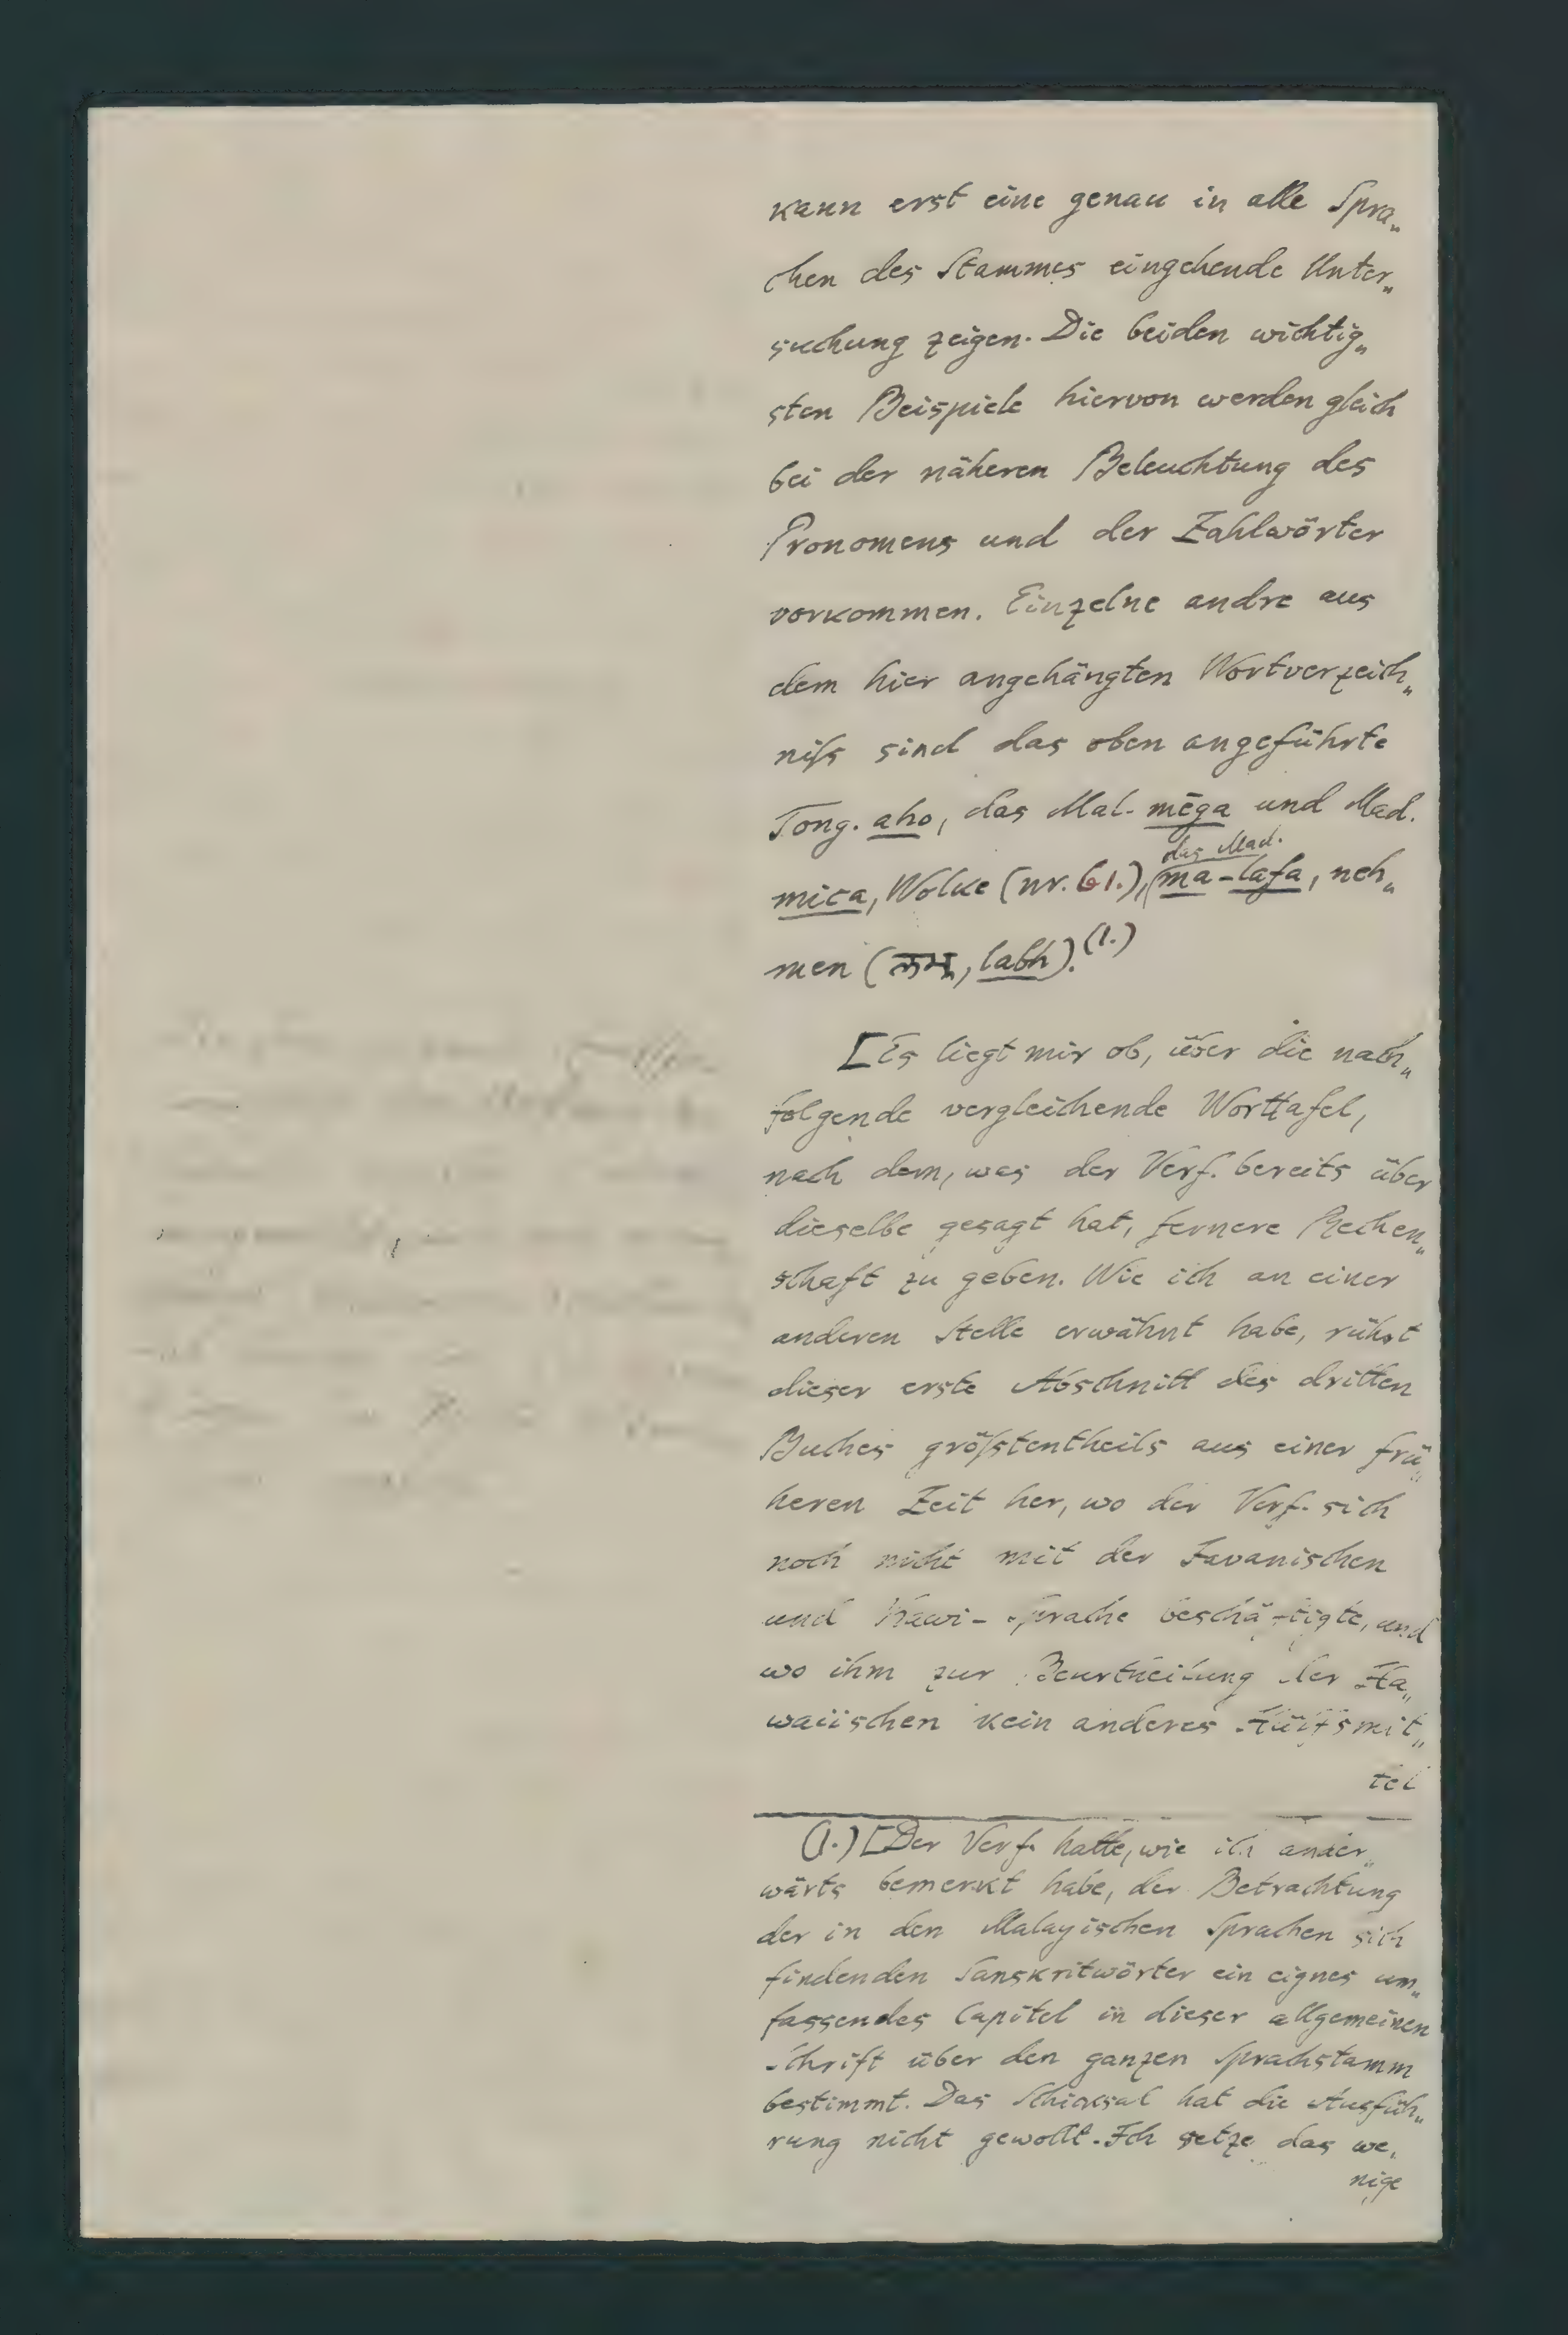 kann erst eine genau in alle Spra„
chen des Stammes eingehende Unter„
suchung zeigen. Die beiden wichtig„
sten Beispiele hiervon werden gleich
bei der näheren Beleuchtung des
Pronomens und der Zahlwörter
vorkommen. Einzelne andre aus
dem hier angehängten Wortverzeich„
niſs sind das oben angeführte
Tong. aho, das Mal. mēga und Mad.
das Mad.
mica, Wolke (nr. 61.), ma-lafa, neh„
men (लभ्, labh).(1.)
[Es liegt mir ob, über die nach„
folgende vergleichende Worttafel,
nach dem, was der Verf. bereits über
dieselbe gesagt hat, fernere Rechen„
schaft zu geben. Wie ich an einer
anderen Stelle erwähnt habe, rührt
dieser erste Abschnitt des dritten
Buches gröſstentheils aus einer frü„
heren Zeit her, wo der Verf. sich
noch nicht mit der Javanischen
und Kawi-Sprache beschäftigte, und
wo ihm zur Beurtheilung der Ha„
waiischen kein anderes Hülfsmit„
tel
(1.) [Der Verf. hatte, wie ich ander„
wärts bemerkt habe, der Betrachtung
der in den Malayischen Sprachen sich
findenden Sanskritwörter ein eignes um„
fassendes Capitel in dieser allgemeinen
Schrift über den ganzen Sprachstamm
bestimmt. Das Schicksal hat die Ausfüh„
rung nicht gewollt. Ich setze das we„
nige